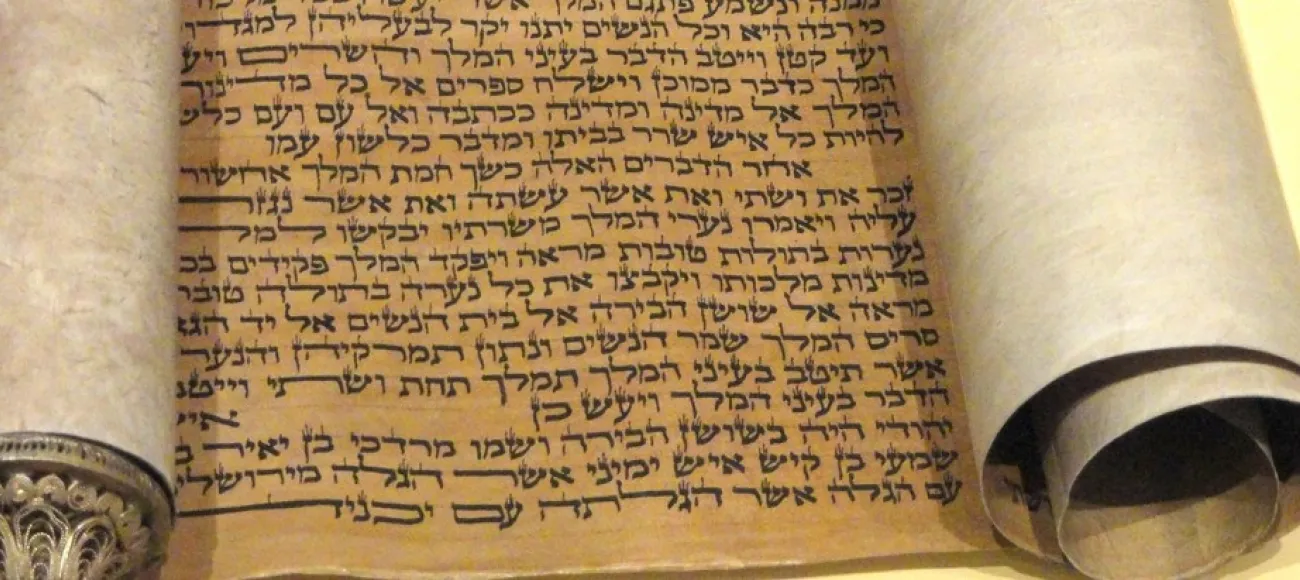 ממנה ונשמע פתגם המלך אשר
כי רבה היא וכל הנשים יתנו יקר לבעליהן
ועד קטן וייטב הדבר בעיני המלך והשרים
המלך כדבר ממוכן וישלח ספרים אל כל
המלך אל מדינה ומדינה ככתבה ואל עם ועם
להיות כל איש שרר בביתו ומדבר כלשון עמו
אחר הדברים האלה כשך חמת המלך
זכר את ושתי ואת אשר עשתה ואת אשר נגזר
עליה ויאמרו נערי המלך משרתיו יבקשו
נערות בתולות טובות מראה ויפקד המלך פקידים
מדינות מלכותו ויקבצו את כל נערה בתולה
מראה אל שושן הבירה אל בית הנשים אל יד
סריס המלך שמר הנשים ונתון תמרקיהן
אשר תיטב בעיני המלך תמלך תחת ושתי
הדבר בעיני המלך ויעש כן איש
יהודי היה בשושן הבירה ושמו מרדכי בן יאיר
שמעי בן קיש איש ימיני אשר הגלה
עם הגלה אשר הגלתה עם יכניה